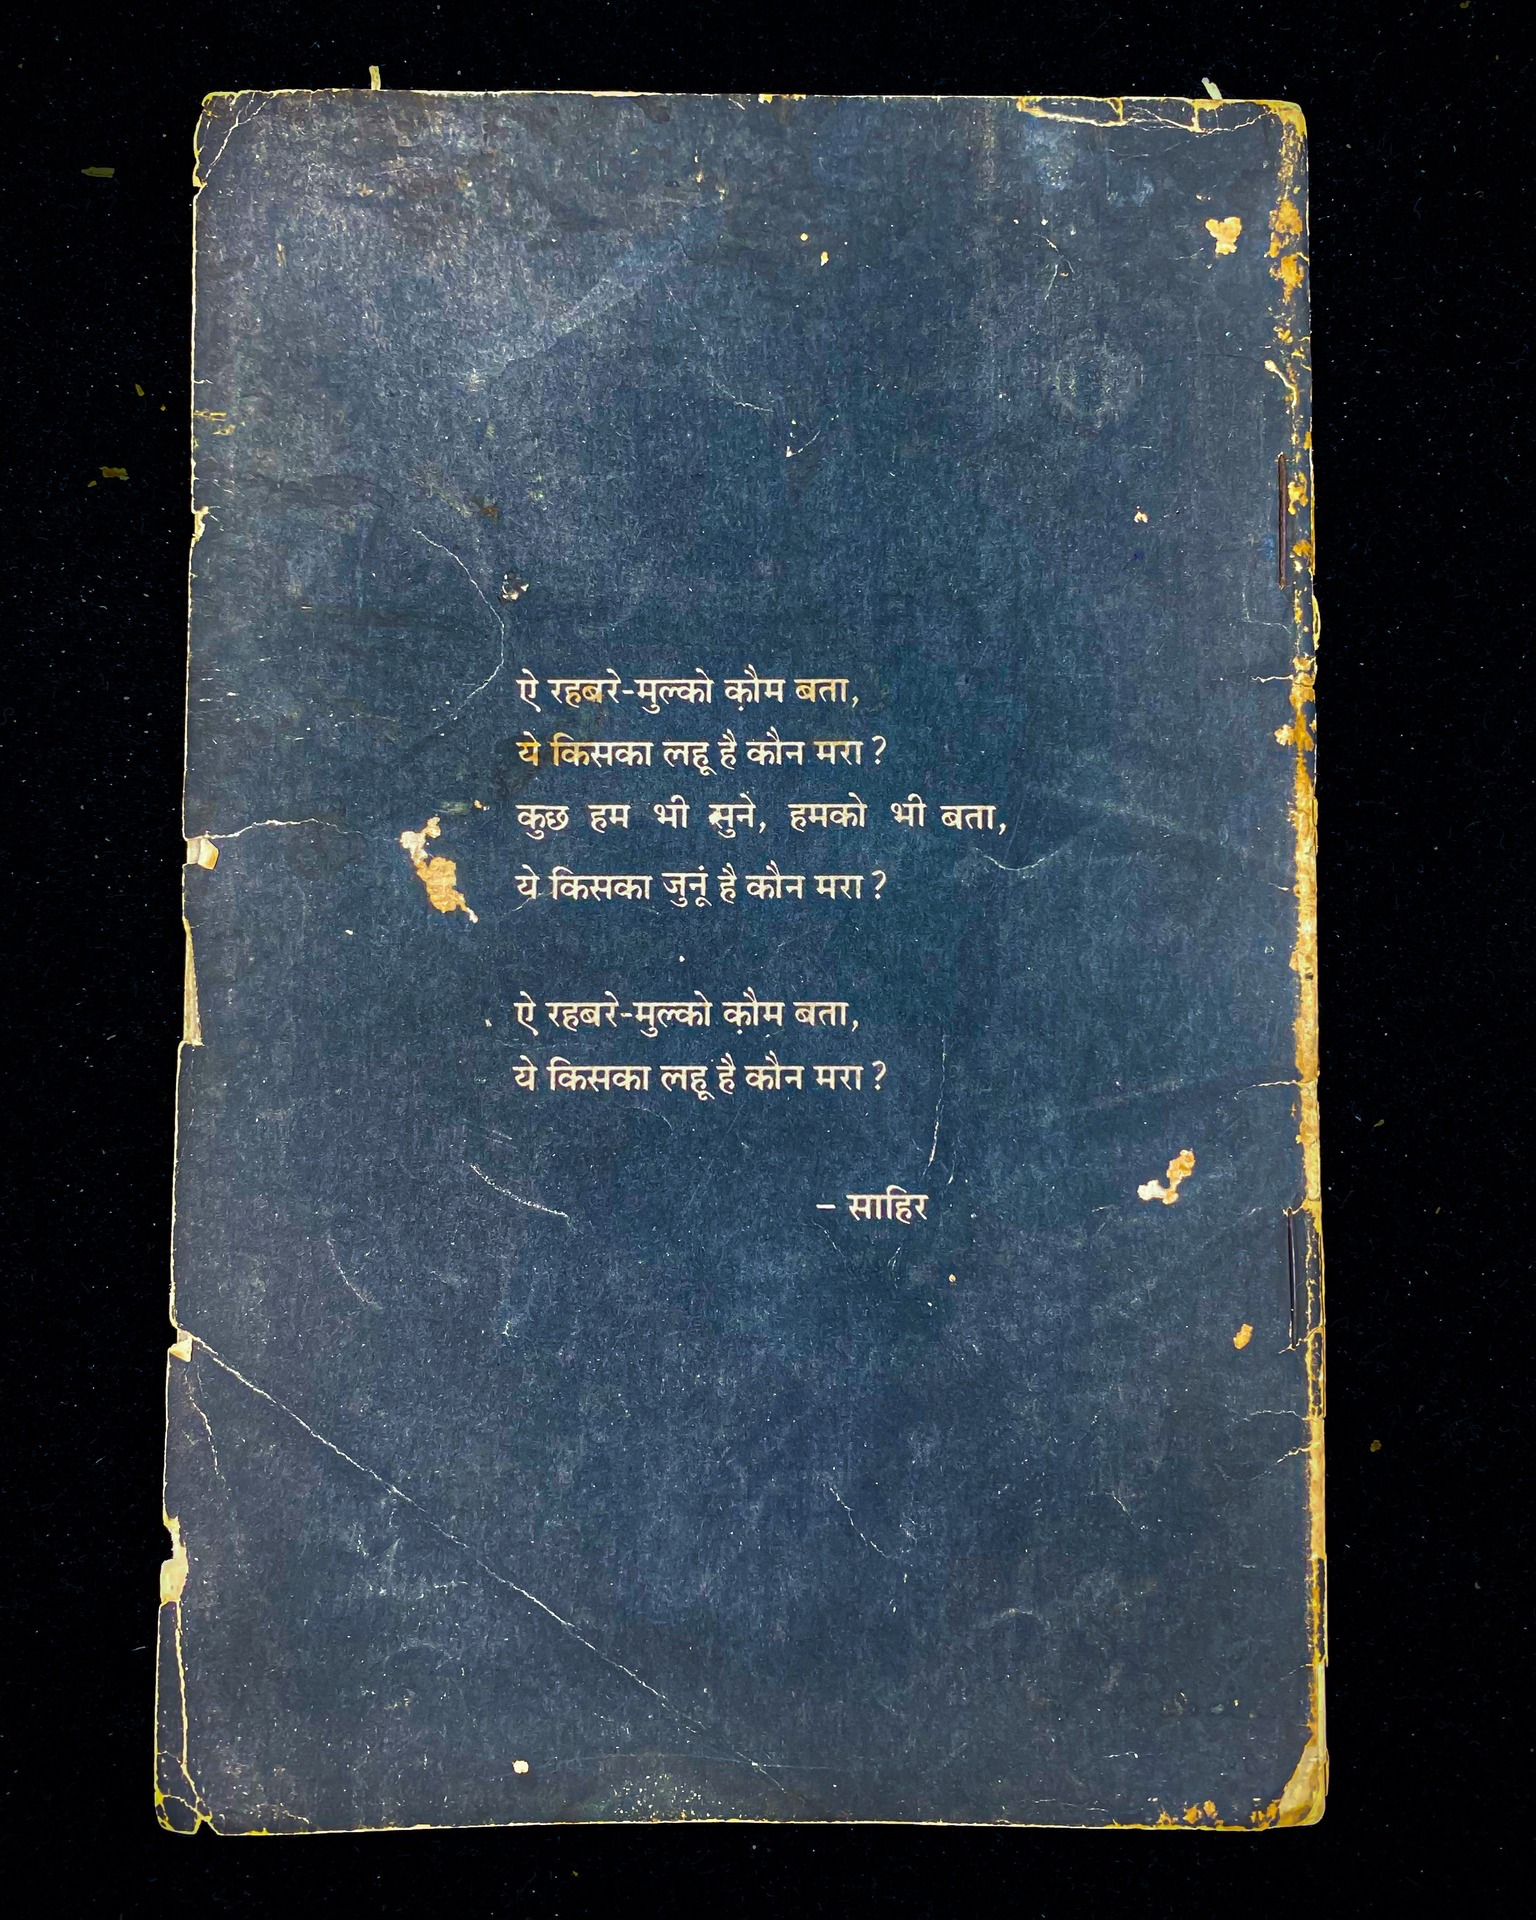 ऐ रहबरे-मुल्को क़ौम बता,
ये किसका लहू है कौन मरा ?
कुछ हम भी सुने, हमको भी बता,
ये किसका जुनूं है कौन मरा ?
ऐ रहबरे-मुल्को क़ौम बता,
ये किसका लहू है कौन मरा ?
– साहिर